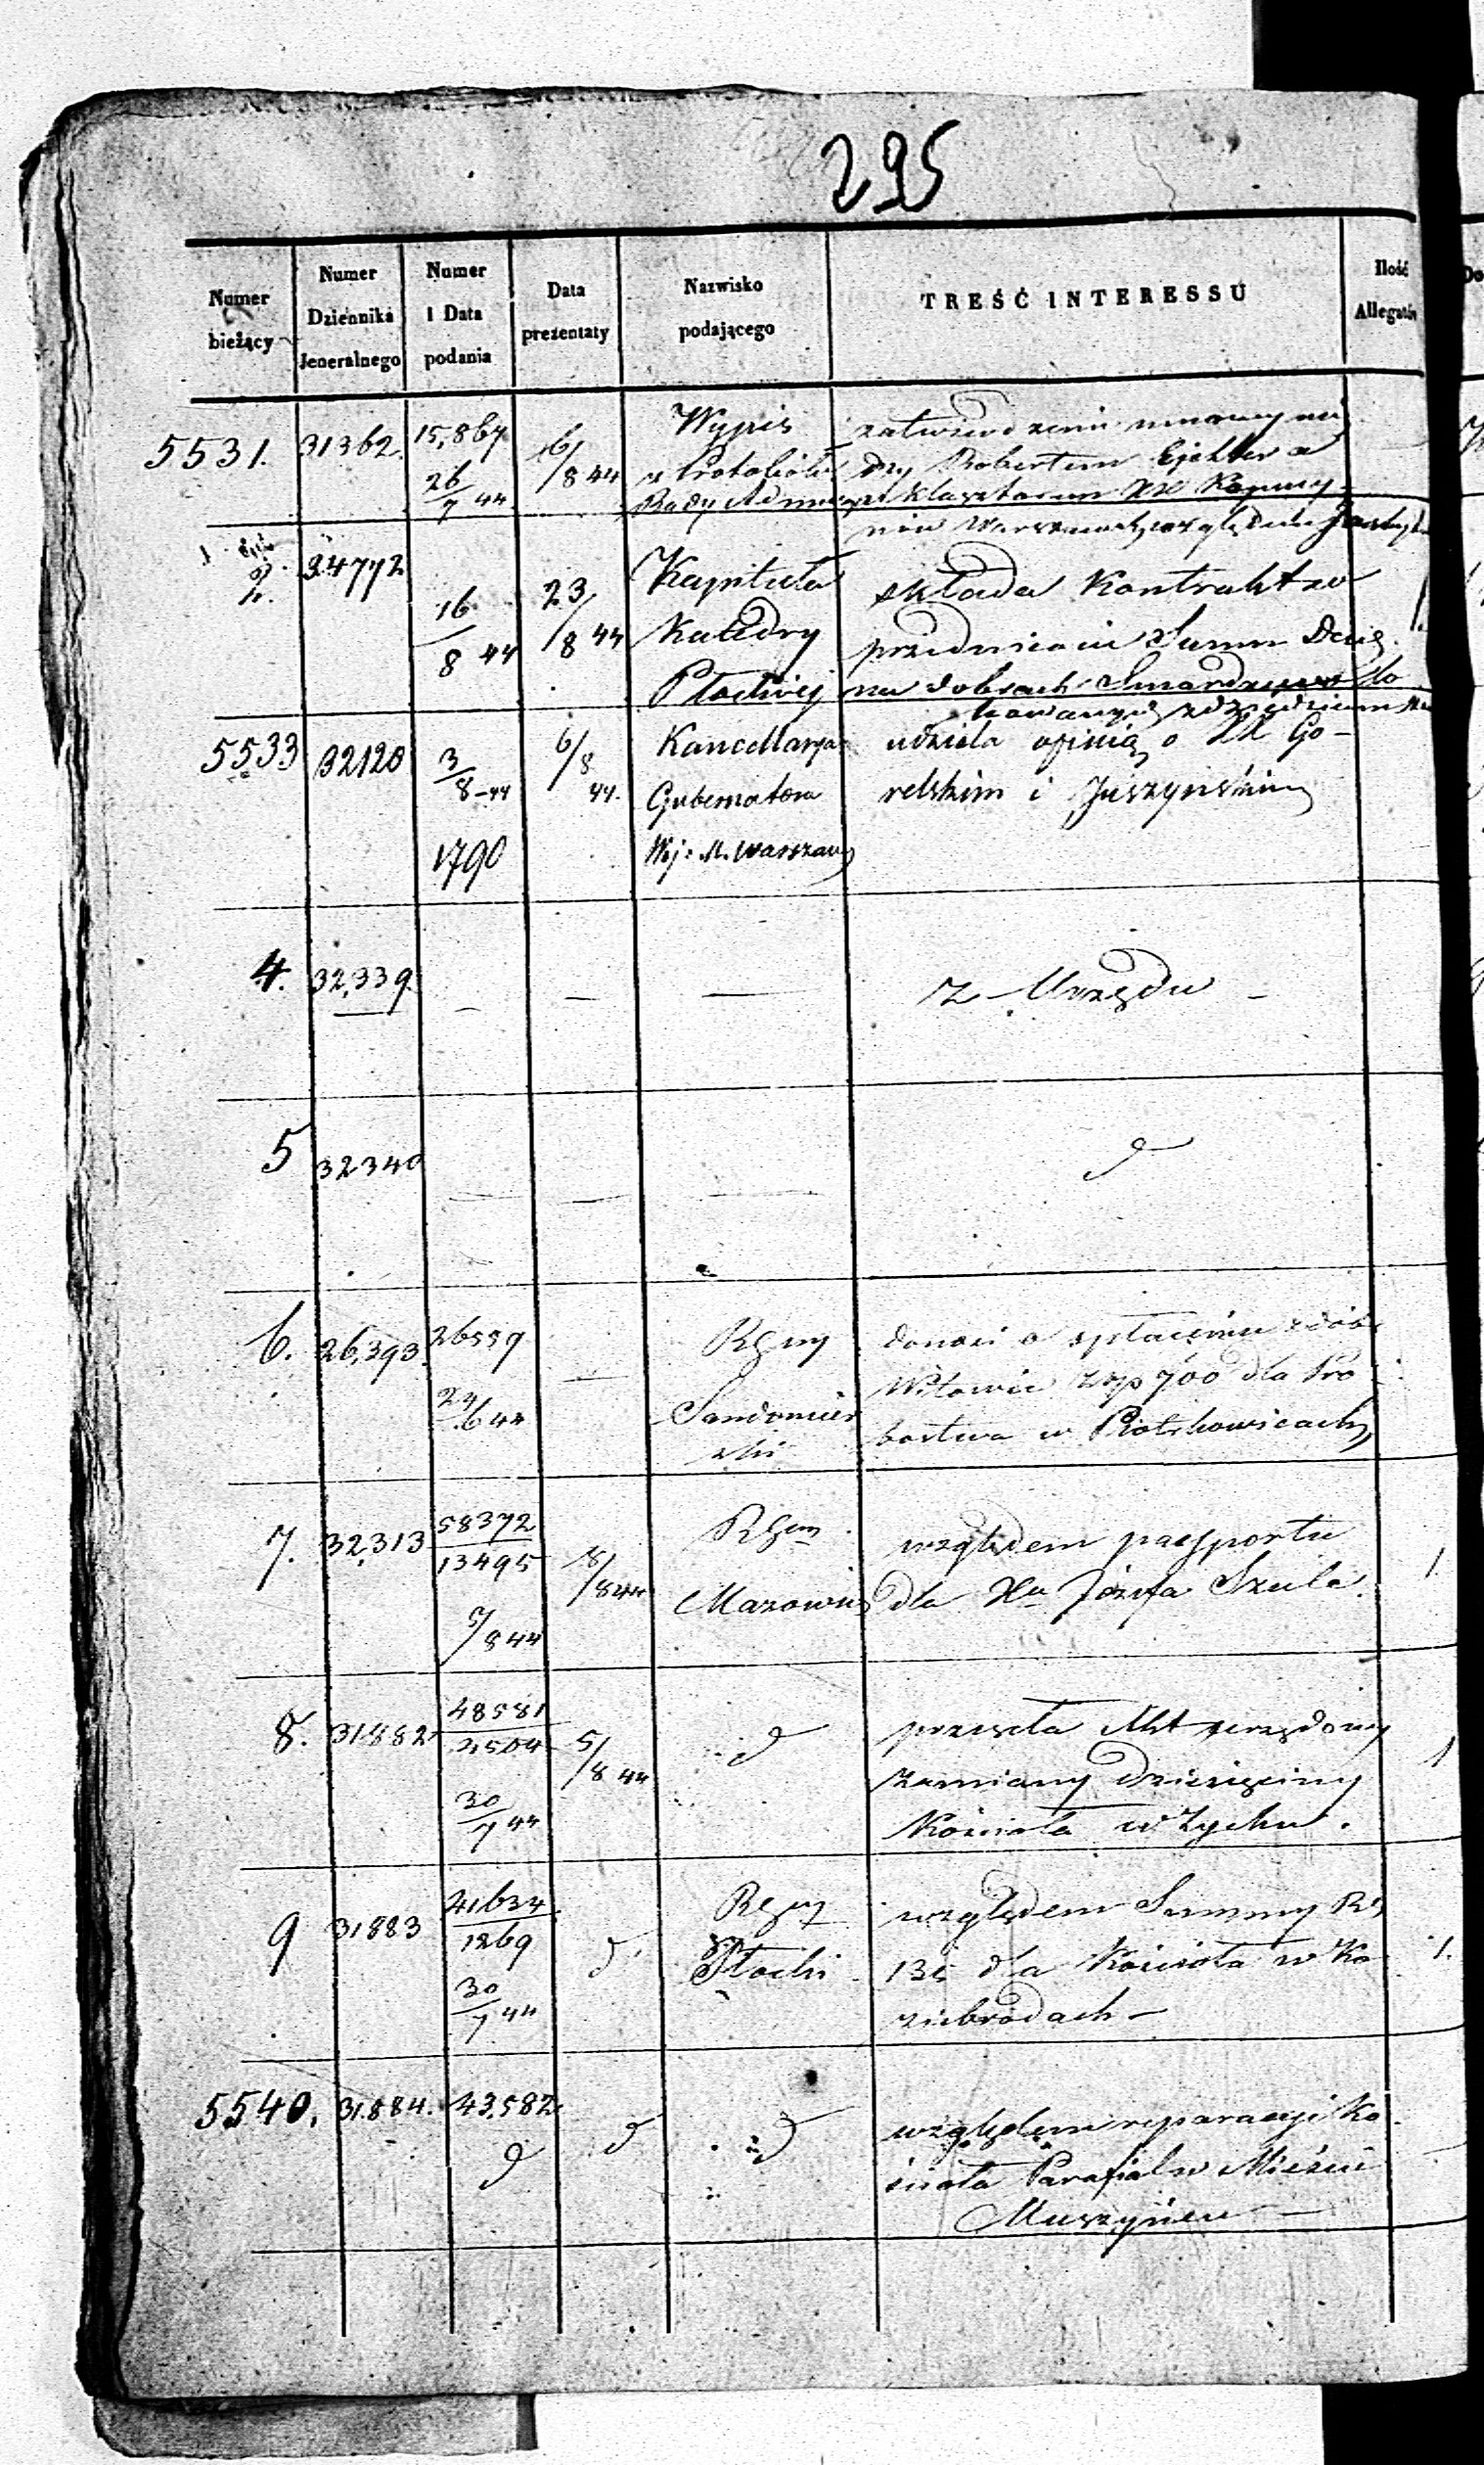 295
Numer bieżący
Numer Dziennika Jeneralnego
Numer i Data podania
Data prezentaty
Nazwisko podającego
TREŚĆ INTERESSU
Ilość Allegatów
5531. 31362. 15,867 26/7 44 6/8 44
Wypis
z Protokółu
Rady Admin
zatwierdzenie umowy mię
dzy Robertem
a Klasztorem XX Kapucy-
nów względem
2. 34772 16/8 44 23/8 44
Kapituła
Katedry
Płockiéj
składa Kontrakt ze
Summ
na dobrach lo
kowanych
5533 32120 3/8-44 1790 6/8 44.
Kancellarya
Gubernatora
Woj: M. Warszawy
udziela opinią o XX Go-
relskim i Juszyńskim
4. 32,339. — — — z Urzędu —
5 32340 — — — d
6. 26,393. 26559 6 44 —
Rząd
Sandomier
ski
donosi o spłaceniu z dóbr
Witowic złp 700 dla Pro
bostwa w Piotrkowicach
7. 32,313 58372/13495 7/8 44 8/8 44
Rząd
Mazowie
względem passportu
dla Xa Józefa Szula.
1
8. 31882 48581/2504 30/7 44 5/8 44 d
przesyła Akt urzędowy
zamiany dziesięciny
Kościoła w Zychu.
1
9 31883 41634/1269 30/7 44 d.
Rząd
Płocki
względem Summy Rs
135 dla Kościoła w Ko
ziebrodach —
1.
5540. 31.884. 43,582 d d d
względem reparacyi Ko
ścioła Parafial w Mieście
—